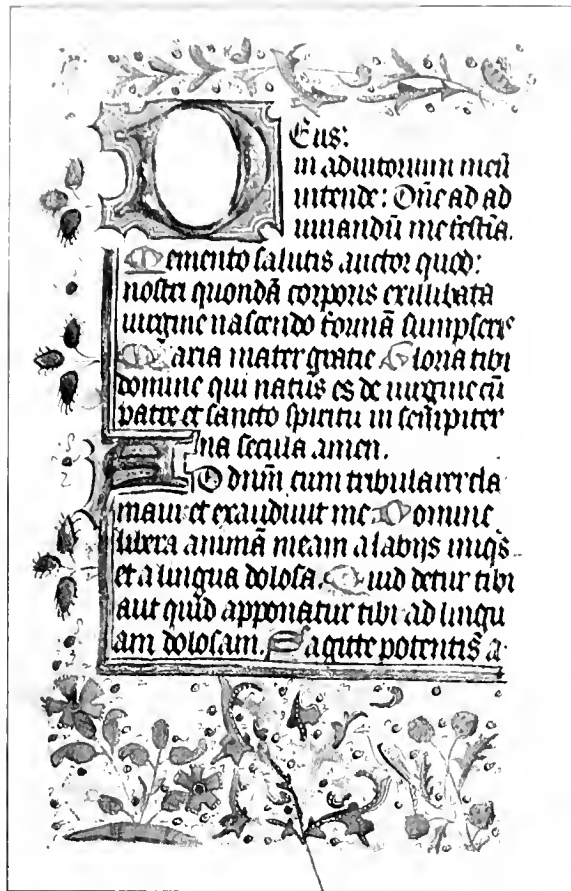 Deus:
in adiutorium meū
intende: Dñe ad ad
iuuandū me festīa.
Memento salutis auctor quod:
nostri quondā corporis exillibata
uirgine nascendo formā sumpseris
Maria mater gratie Gloria tibi
domine qui natus es de uirgine cū
patre et sancto spiritu in sempiter
na secula amen.
AD dnm̄ cum tribularer cla
maui: et exaudiuit me Domine
libera animā meam a labijs iniqs
et a lingua dolosa. Quid detur tibi
aut quid apponatur tibi ad lingu
am dolosam. Sagitte potentis a